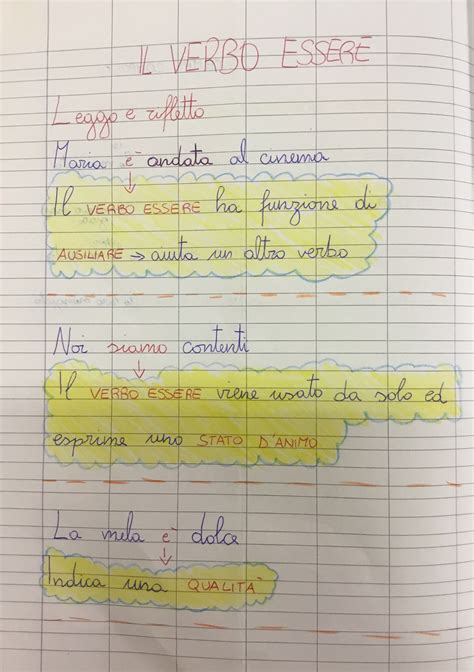 IL VERBO ESSERE
Leggo e rifletto
Maria è andata al cinema
Il VERBO ESSERE ha funzione di
AUSILIARE → aiuta un altro verbo
Noi siamo contenti
Il VERBO ESSERE viene usato da solo ed
esprime uno STATO D'ANIMO
La mela è dolce
Indica una QUALITÀ